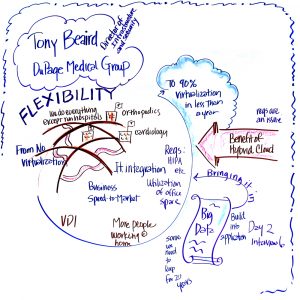 Tony Beaird
Director of
Infrastructure
and security
DuPage Medical Group
FLEXIBILITY
We do everything
except run hospitals
Orthopedics
cardiology
From No
Virtualization
To 90%
Virtualization
in less than
a year
regs are
an issue
Benefit of
Hybrid Cloud
It integration
Regs:
HIPA,
etc.
Business
Speed-to-Market
Utilization
of office
space
VDI
More people
working @
home
Bringing it
Big
Data
some we
need to
keep for 20
years
Build
into
application
Day 2
Interview 6